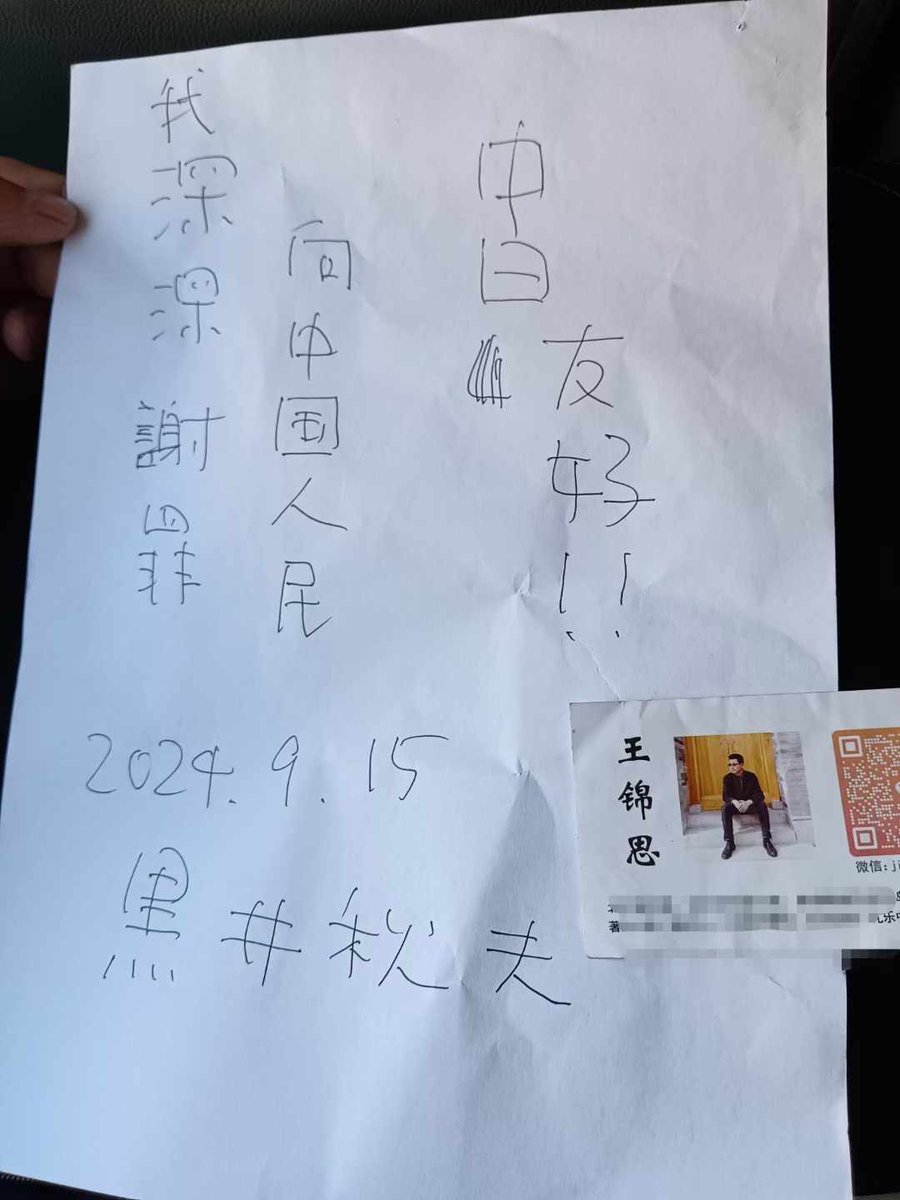 我深深謝罪
向中国人民
中日
友好!!
2024.9.15
黒井秋夫
王锦思
微信:ji
著